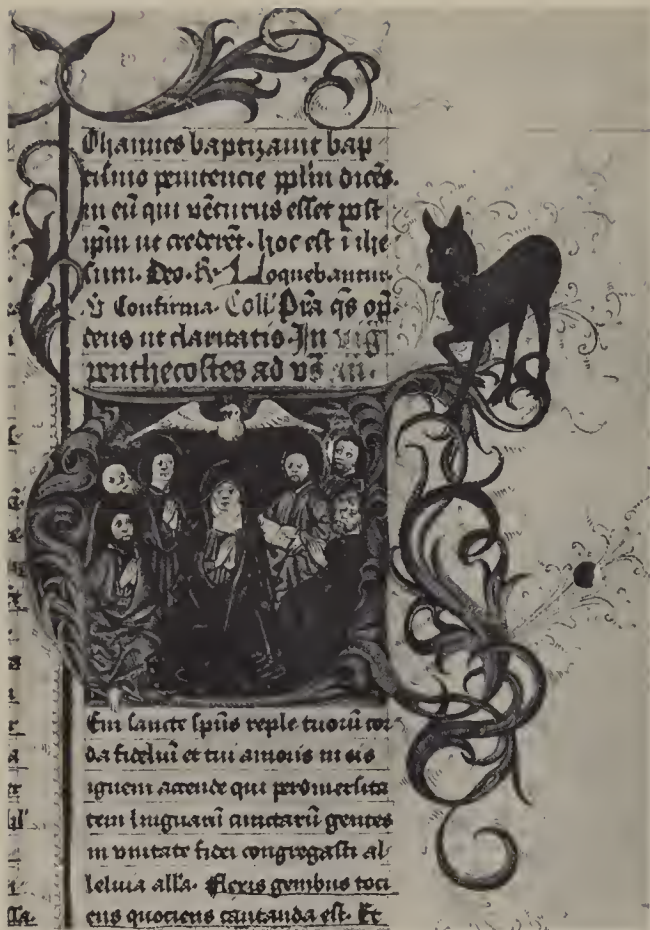 Ohannes baptizauit bap
tismo penitencie pplm dices.
in eu qui venturus esset post
ipm ut crederet. hoc est i ihe
sum. Deo. R Loquebantur.
V Confirma. Coll Pra qs op
deus ut claritatis. In vig
penthecostes ad vs an.
Eni sancte spus reple tuoru cor
da fideliu et tui amoris in eis
ignem accende qui per diuersita
tem linguaru cunctaru gentes
in vnitate fidei congregasti al
leluia alla. Flexis genibus toci
ens quociens cantanda est. Et